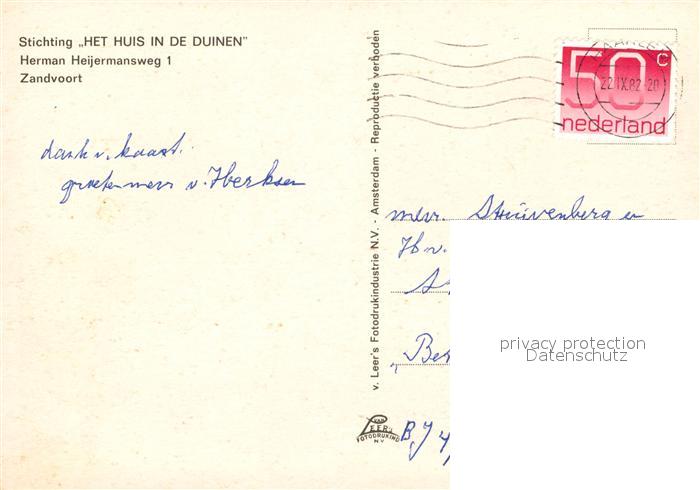 Stichting „HET HUIS IN DE DUINEN”
Herman Heijermansweg 1
Zandvoort
dank v. kaart.
groeten mevr v.
v. Leer's Fotodrukindustrie N.V. - Amsterdam - Reproductie verboden
22.IX.82-20
50 C
nederland
mevr. Stuivenberg en
„Be
B J 4
VAN
LEER'S
FOTODRUKIND
N.V.
privacy protection
Datenschutz